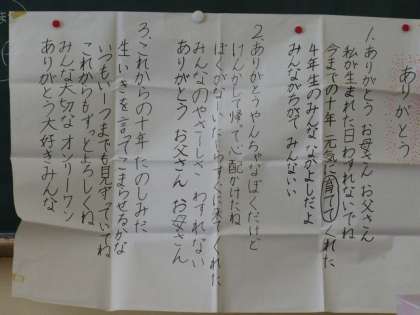 ありがとう
1、ありがとう お母さん お父さん
私が生まれた日わすれないでね
今までの十年 元気に育ててくれた
4年生のみんな なかよしだよ
みんなちがってみんないい
2、ありがとうやんちゃなぼくだけど
けんかして帰って心配かけたね
ぼくがないたらすぐに来てくれた
みんなのやさしさ わすれない
ありがとう お父さん お母さん
3、これからの十年 たのしみだ
生いきを言ってこまらせるかな
いつもいつまでも見守っていてね
これからもずっとよろしくね
みんな大切な オンリーワン
ありがとう大好きみんな